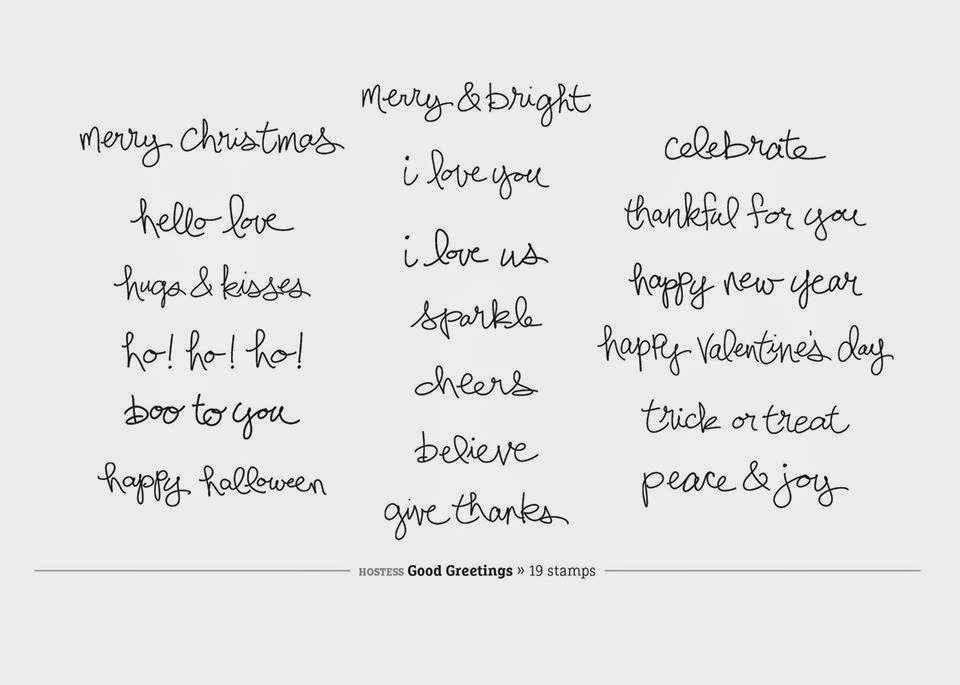 merry christmas
hello love
hugs & kisses
ho! ho! ho!
boo to you
happy halloween
merry & bright
i love you
i love us
sparkle
cheers
believe
give thanks
celebrate
thankful for you
happy new year
happy valentine's day
trick or treat
peace & joy
HOSTESS Good Greetings » 19 stamps